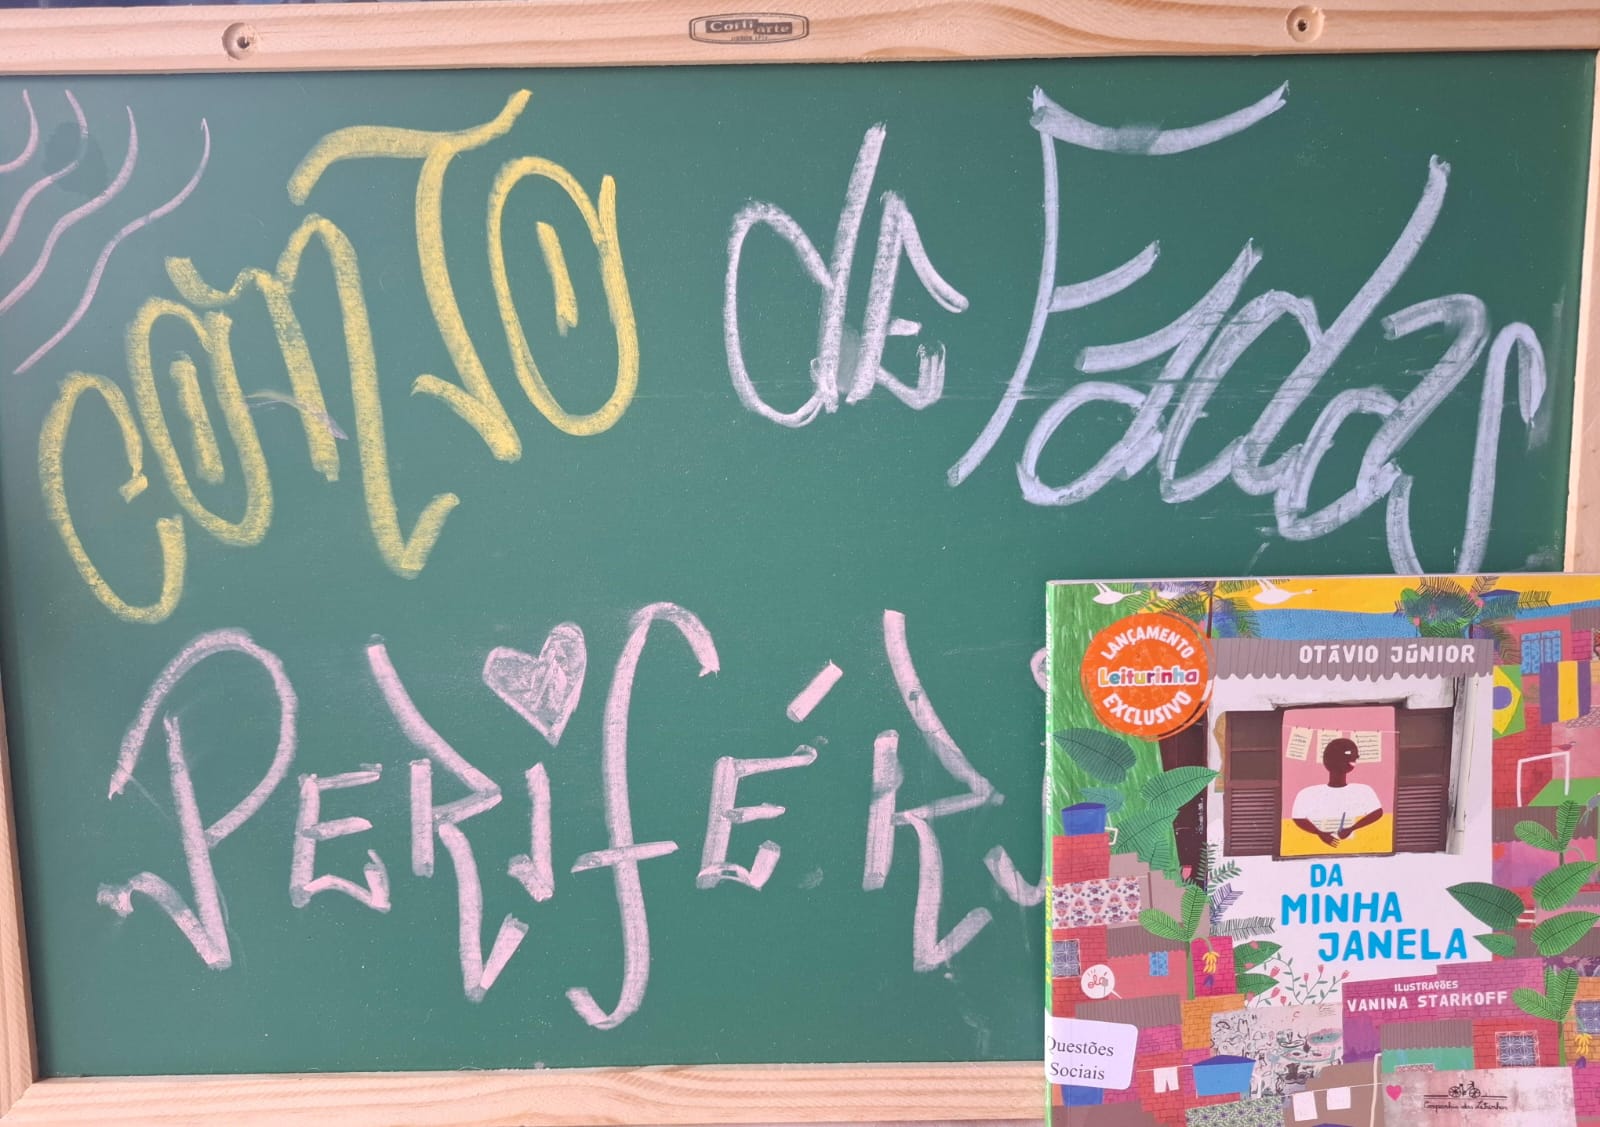 CortiArte
CONTO de Fadas
PERIFÉR
LANÇAMENTO
Leiturinha
EXCLUSIVO
OTÁVIO JÚNIOR
DA
MINHA
JANELA
ILUSTRAÇÕES
VANINA STARKOFF
Questões
Sociais
Companhia das Letrinhas